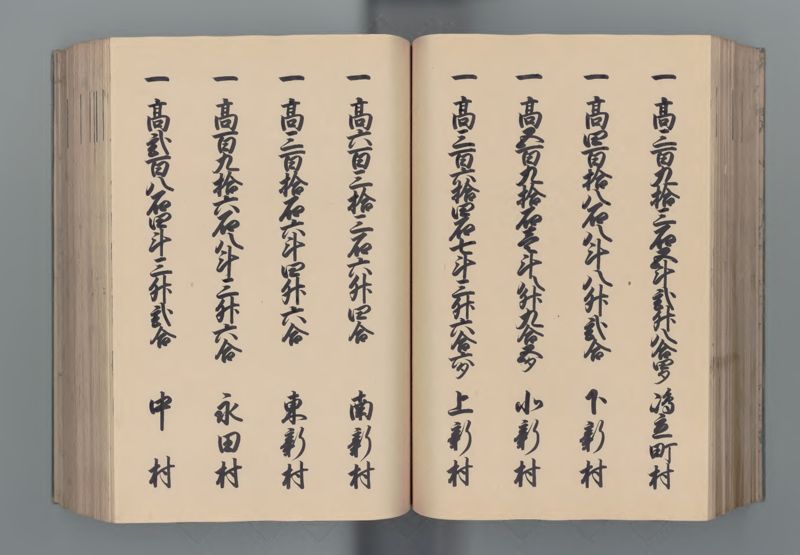 一 高三百九拾三石五斗弐升八合四勺 鴻立町村
一 高四百拾八石八斗八升弐合 下新村
一 高五百九拾石壱斗八升九合五勺 小新村
一 高三百六拾四石七斗三升六合六勺 上新村
一 高六百三拾三石六升四合 南新村
一 高三百拾石六斗四升六合 東新村
一 高百九拾六石八斗三升六合 永田村
一 高弐百八石四斗三升弐合 中村